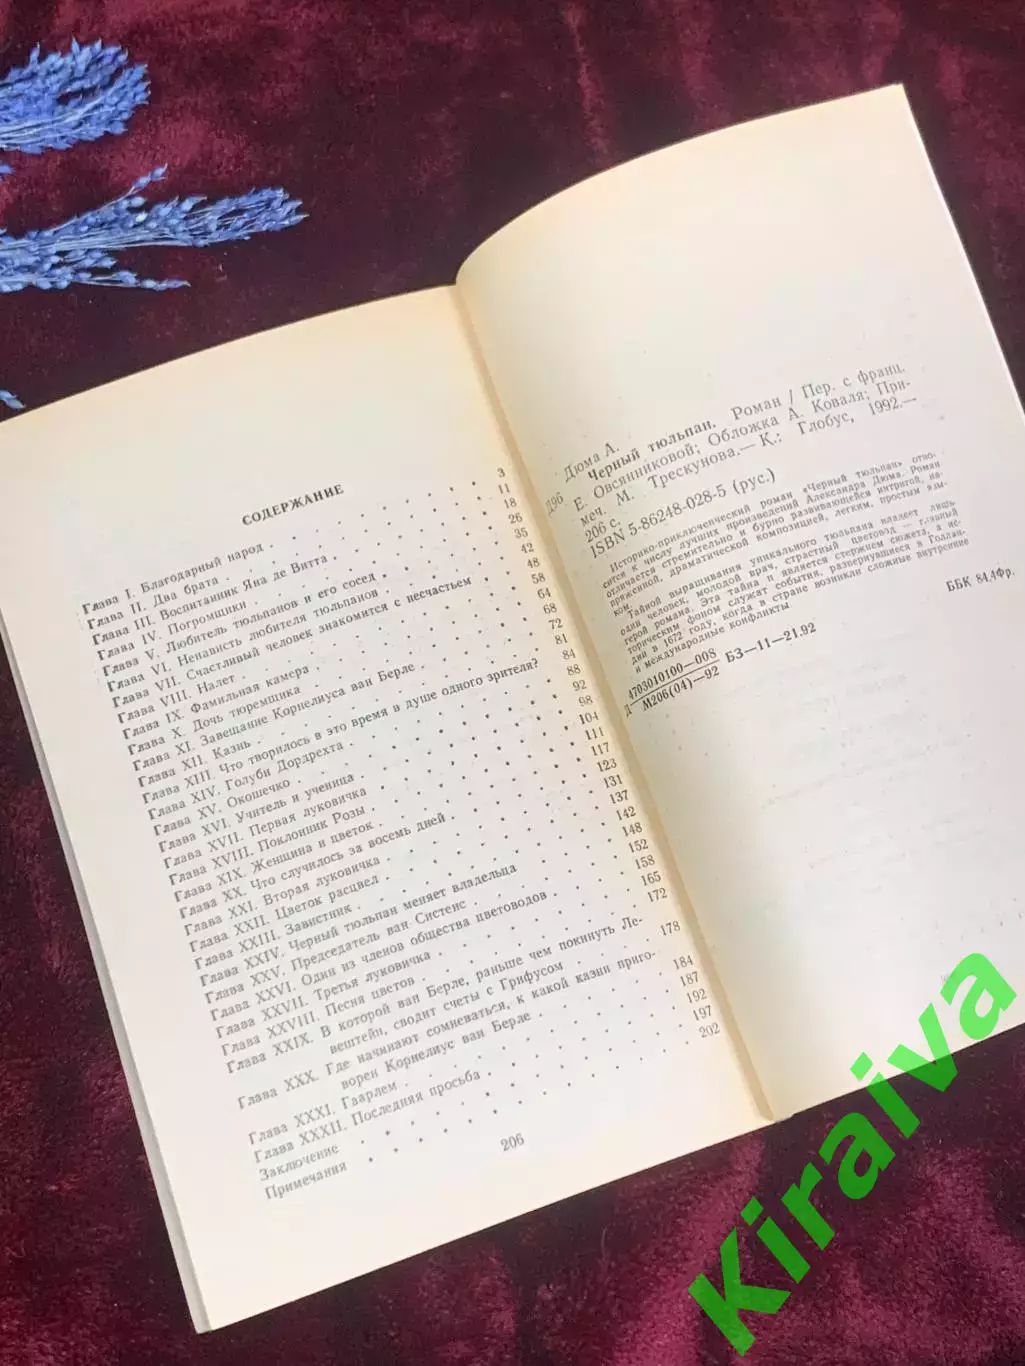 СОДЕРЖАНИЕ
Глава I. Благодарный народ . . . 3
Глава II. Два брата . . . 11
Глава III. Воспитанник Яна де Витта . . . 18
Глава IV. Погромщики . . . 26
Глава V. Любитель тюльпанов и его сосед . . . 35
Глава VI. Ненависть любителя тюльпанов . . . 42
Глава VII. Счастливый человек знакомится с несчастьем . . . 48
Глава VIII. Налет . . . 58
Глава IX. Фамильная камера . . . 64
Глава X. Дочь тюремщика . . . 68
Глава XI. Завещание Корнелиуса ван Берле . . . 72
Глава XII. Казнь . . . 81
Глава XIII. Что творилось в это время в душе одного зрителя? 84
Глава XIV. Голуби Дордрехта . . . 88
Глава XV. Окошечко . . . 92
Глава XVI. Учитель и ученица . . . 98
Глава XVII. Первая луковичка . . . 104
Глава XVIII. Поклонник Розы . . . 111
Глава XIX. Женщина и цветок . . . 117
Глава XX. Что случилось за восемь дней . . . 123
Глава XXI. Вторая луковичка . . . 131
Глава XXII. Цветок расцвел . . . 137
Глава XXIII. Завистник . . . 142
Глава XXIV. Черный тюльпан меняет владельца . . . 148
Глава XXV. Председатель ван Систенс . . . 152
Глава XXVI. Один из членов общества цветоводов . . . 158
Глава XXVII. Третья луковичка . . . 165
Глава XXVIII. Песня цветов . . . 172
Глава XXIX. В которой ван Берле, раньше чем покинуть Ле-
вештейн, сводит счеты с Грифусом . . . 178
Глава XXX. Где начинают сомневаться, к какой казни приго-
ворен Корнелиус ван Берле . . . 184
Глава XXXI. Гаарлем . . . 187
Глава XXXII. Последняя просьба . . . 192
Заключение . . . 197
Примечания . . . 202
206
Дюма А.
Д96 Черный тюльпан. Роман / Пер. с франц.
Е. Овсянниковой; Обложка А. Коваля; При-
меч. М. Трескунова.— К.: Глобус, 1992.—
206 с.
ISBN 5-86248-028-5 (рус.)
Историко-приключенческий роман «Черный тюльпан» отно-
сится к числу лучших произведений Александра Дюма. Роман
отличается стремительно и бурно развивающейся интригой, на-
пряженной, драматической композицией, легким, простым язы-
ком.
Тайной выращивания уникального тюльпана владеет лишь
один человек, молодой врач, страстный цветовод — главный
герой романа. Эта тайна и является стержнем сюжета, а ис-
торическим фоном служат события, развернувшиеся в Голлан-
дии в 1672 году, когда в стране возникли сложные внутренние
и международные конфликты
Д 4703010100—008
М206(04)—92 БЗ—11—21.92
ББК 84.4Фр.
Kiraiva